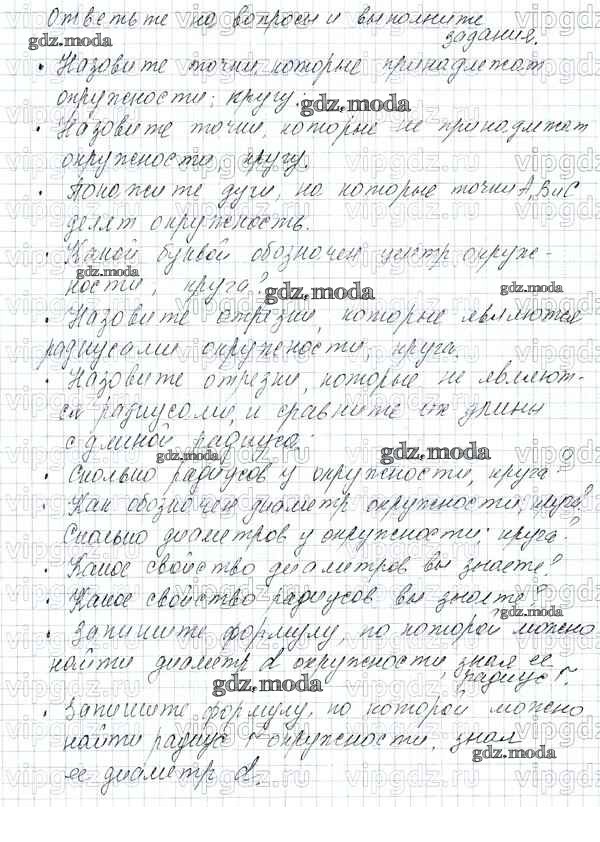 Ответьте на вопросы и выполните
задания.
gdz.moda
• Назовите точки, которые принадлежат
окружности; кругу.
gdz.moda
• Назовите точки, которые не принадлежат
окружности, кругу.
• Покажите дуги, на которые точки А, В и С
делят окружность.
• Какой буквой обозначен центр окруж-
gdz.moda
ности, круга?
gdz.moda
gdz.moda
• Назовите отрезки, которые являются
радиусами окружности; круга.
• Назовите отрезки, которые не являют-
ся радиусами, и сравните их длины
с длиной радиуса.
gdz.moda
gdz.moda
• Сколько радиусов у окружности, круга?
• Как обозначен диаметр окружности, круга?
Сколько диаметров у окружности; круга?
• Какое свойство диаметров вы знаете?
• Какое свойство радиусов вы знаете?
gdz.moda
• Запишите формулу, по которой можно
найти диаметр d окружности, зная ее
радиус r.
gdz.moda
• Запишите формулу, по которой можно
найти радиус r окружности, зная
gdz.moda
ее диаметр d.